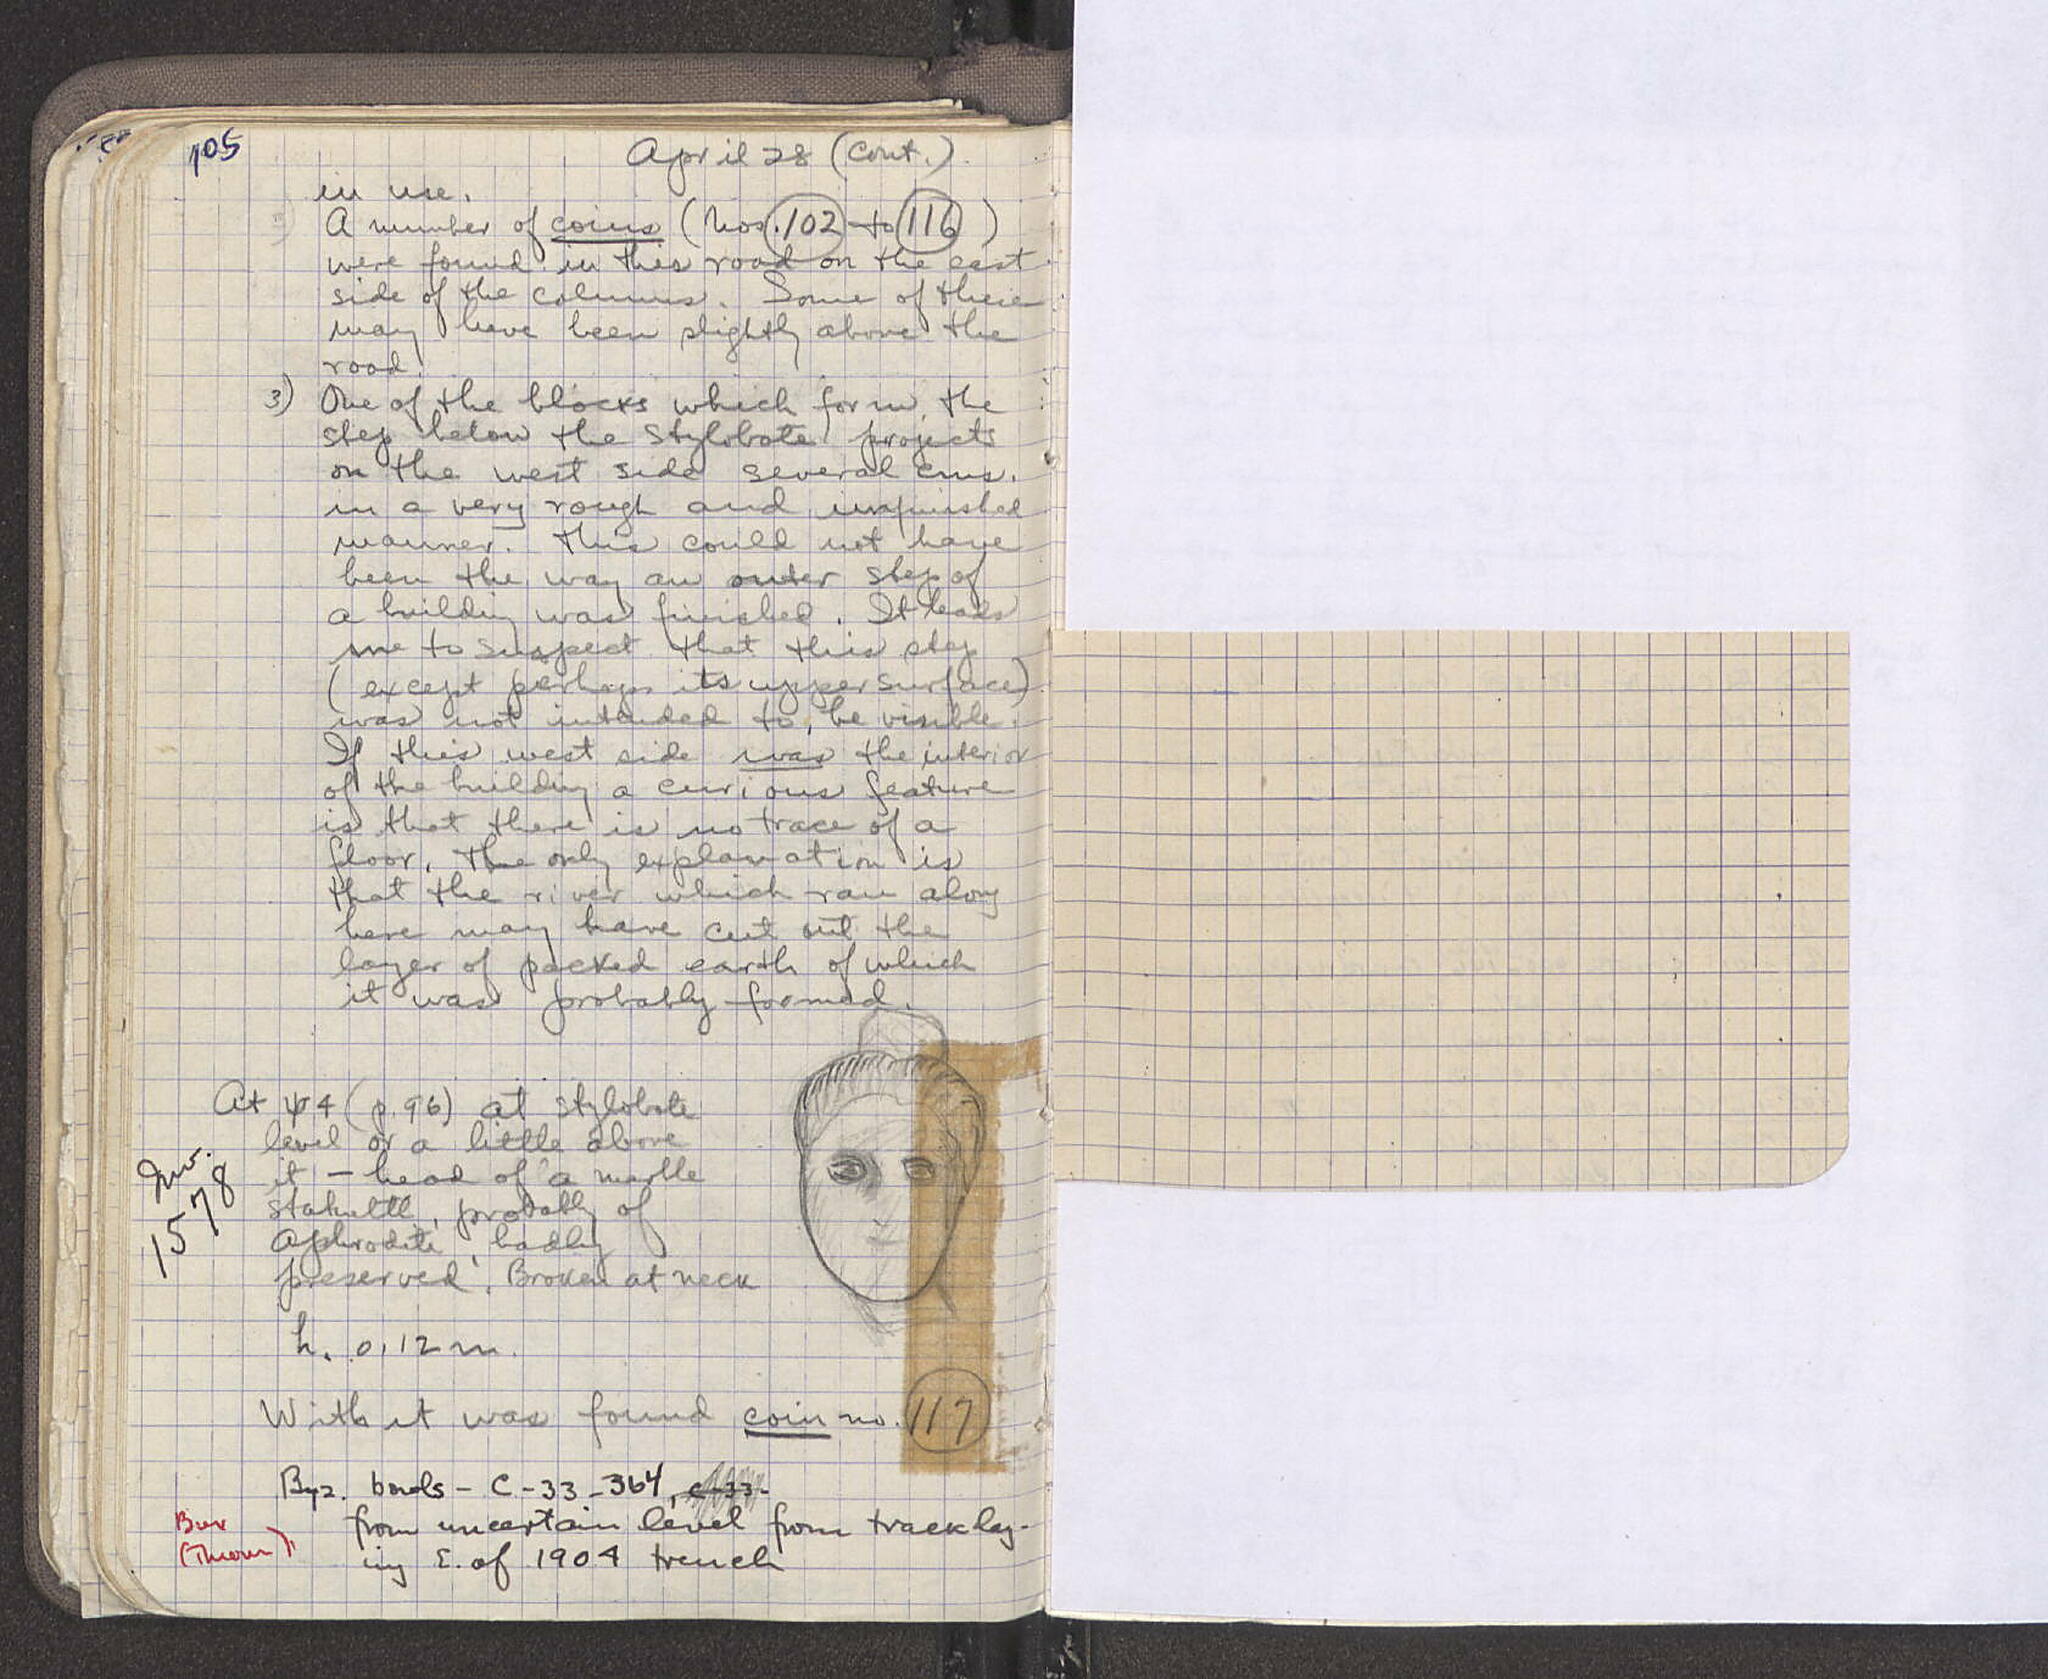 105
April 28 (cont.)
in use.
A number of coins (Nos. 102 to 116)
were found in this road on the east
side of the columns. Some of these
may have been slightly above the
road.
3) One of the blocks which form the
step below the stylobate projects
on the west side several cms.
in a very rough and unfinished
manner. This could not have
been the way an outer step of
a building was finished. It leads
me to suspect that this step
(except perhaps its upper surface)
was not intended to be visible.
If this west side was the interior
of the building a curious feature
is that there is no trace of a
floor. The only explanation is
that the river which ran along
here may have cut out the
layer of packed earth of which
it was probably formed.
At ψ4 (p. 96) at stylobate
level or a little above
it – head of a marble
statuette, probably of
Aphrodite, badly
preserved. Broken at neck
Inv.
1578
h. 0.12 m.
With it was found coin no. 117
Byz. bowls – C-33-364, C-33-
from uncertain level from track lay-
ing E. of 1904 trench